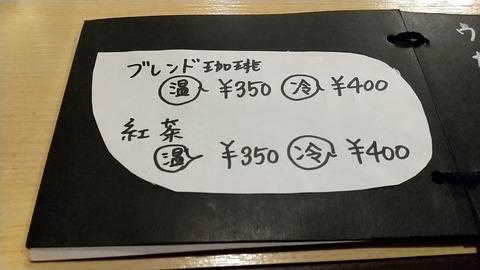 ブレンド珈琲
温 ¥350 冷 ¥400
紅茶
温 ¥350 冷 ¥400
ウ